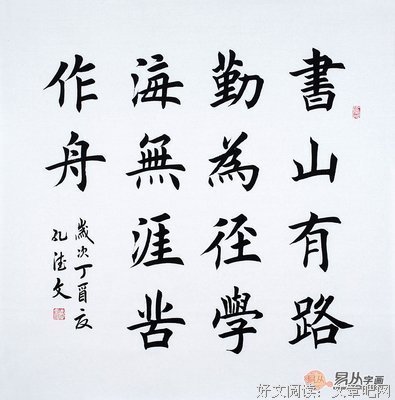 書山有路
勤為径學
海無涯苦
作舟
歲次丁酉夏
孔德文
易从字画
好文阅读：文章吧网